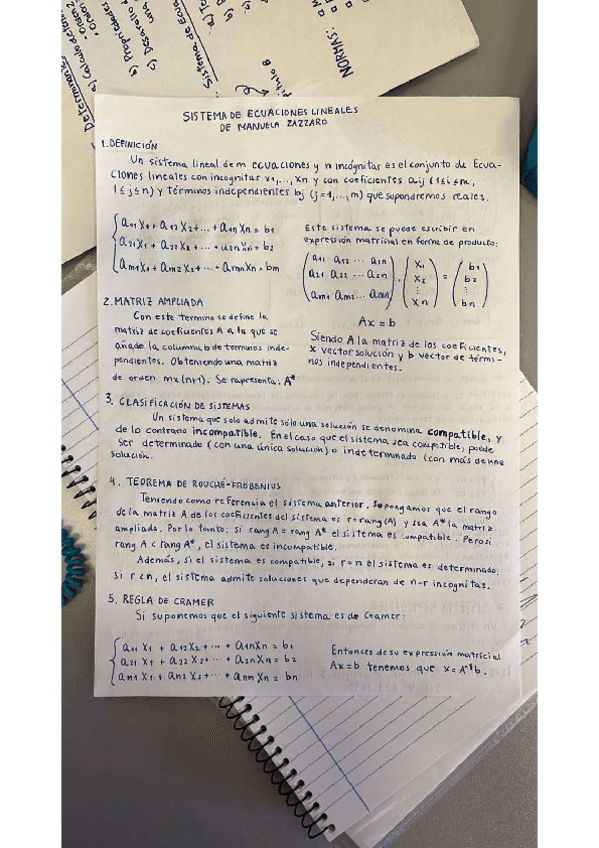 Determinante
a) Calculo
• Orden 2
• Orden
b) Propiedades
c) Desarrollo
una
Sistema de Ecua
a)
b)
NORMAS:
SISTEMA DE ECUACIONES LINEALES
DE MANUELA ZAZZARO
1. DEFINICIÓN
Un sistema lineal de m ecuaciones y n incógnitas es el conjunto de Ecua-
ciones lineales con incognitas x1,...,xn y con coeficientes aij (1≤i≤m,
1≤j≤n) y términos independientes bj (j=1,...,m) que supondremos reales.
a11 X1 + a12 X2 + ... + a1n Xn = b1
a21 X1 + a22 X2 + ... + a2n Xn = b2
am1 X1 + am2 X2 + ... + amn Xn = bm
Este sistema se puede escribir en
expresión matricial en forma de producto:
a11 a12 ... a1n
a21 a22 ... a2n
am1 am2 ... amn
·
x1
x2
⋮
xn
=
b1
b2
⋮
bn
Ax = b
Siendo A la matriz de los coeficientes,
x vector solución y b vector de térmi-
nos independientes.
2. MATRIZ AMPLIADA
Con este termino se define la
matriz de coeficientes A a la que se
añade la columna b de terminos inde-
pendientes. Obteniendo una matriz
de orden mx(n+1). Se representa: A*
3. CLASIFICACIÓN DE SISTEMAS
Un sistema que solo admite sólo una solución se denomina compatible, y
de lo contrario incompatible. En el caso que el sistema sea compatible, puede
ser determinado (con una única solución) o indeterminado (con más de una
solución.
4. TEOREMA DE ROUCHÉ-FRÖBENIUS
Teniendo como referencia el sistema anterior. Supongamos que el rango
de la matriz A de los coeficientes del sistema es r=rang(A) y sea A* la matriz
ampliada. Por lo tanto: si rang A = rang A* el sistema es compatible. Pero si
rang A < rang A*, el sistema es incompatible.
Además, si el sistema es compatible, si r=n el sistema es determinado,
si r<n, el sistema admite soluciones que dependeran de n-r incognitas.
5. REGLA DE CRAMER
Si suponemos que el siguiente sistema es de Cramer:
a11 X1 + a12 X2 + ... + a1n Xn = b1
a21 X1 + a22 X2 + ... + a2n Xn = b2
an1 X1 + an2 X2 + ... + ann Xn = bn
Entonces de su expresión matricial
Ax=b tenemos que x=A⁻¹b.